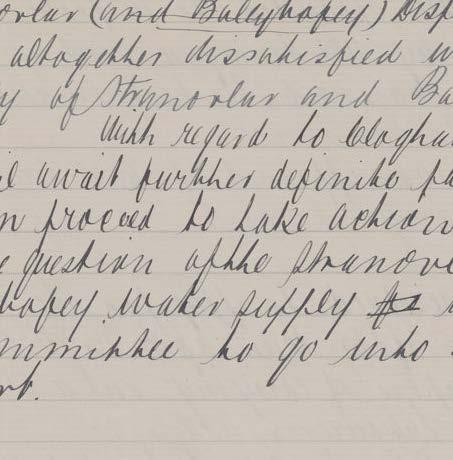 orlar (and Ballybofey) Disp
altogether dissatisfied w
y of Stranorlar and Ba
With regard to Clogha
l await further definite pa
n proceed to take action
e question of the Stranor
bofey water supply
mmittee to go into
rt.